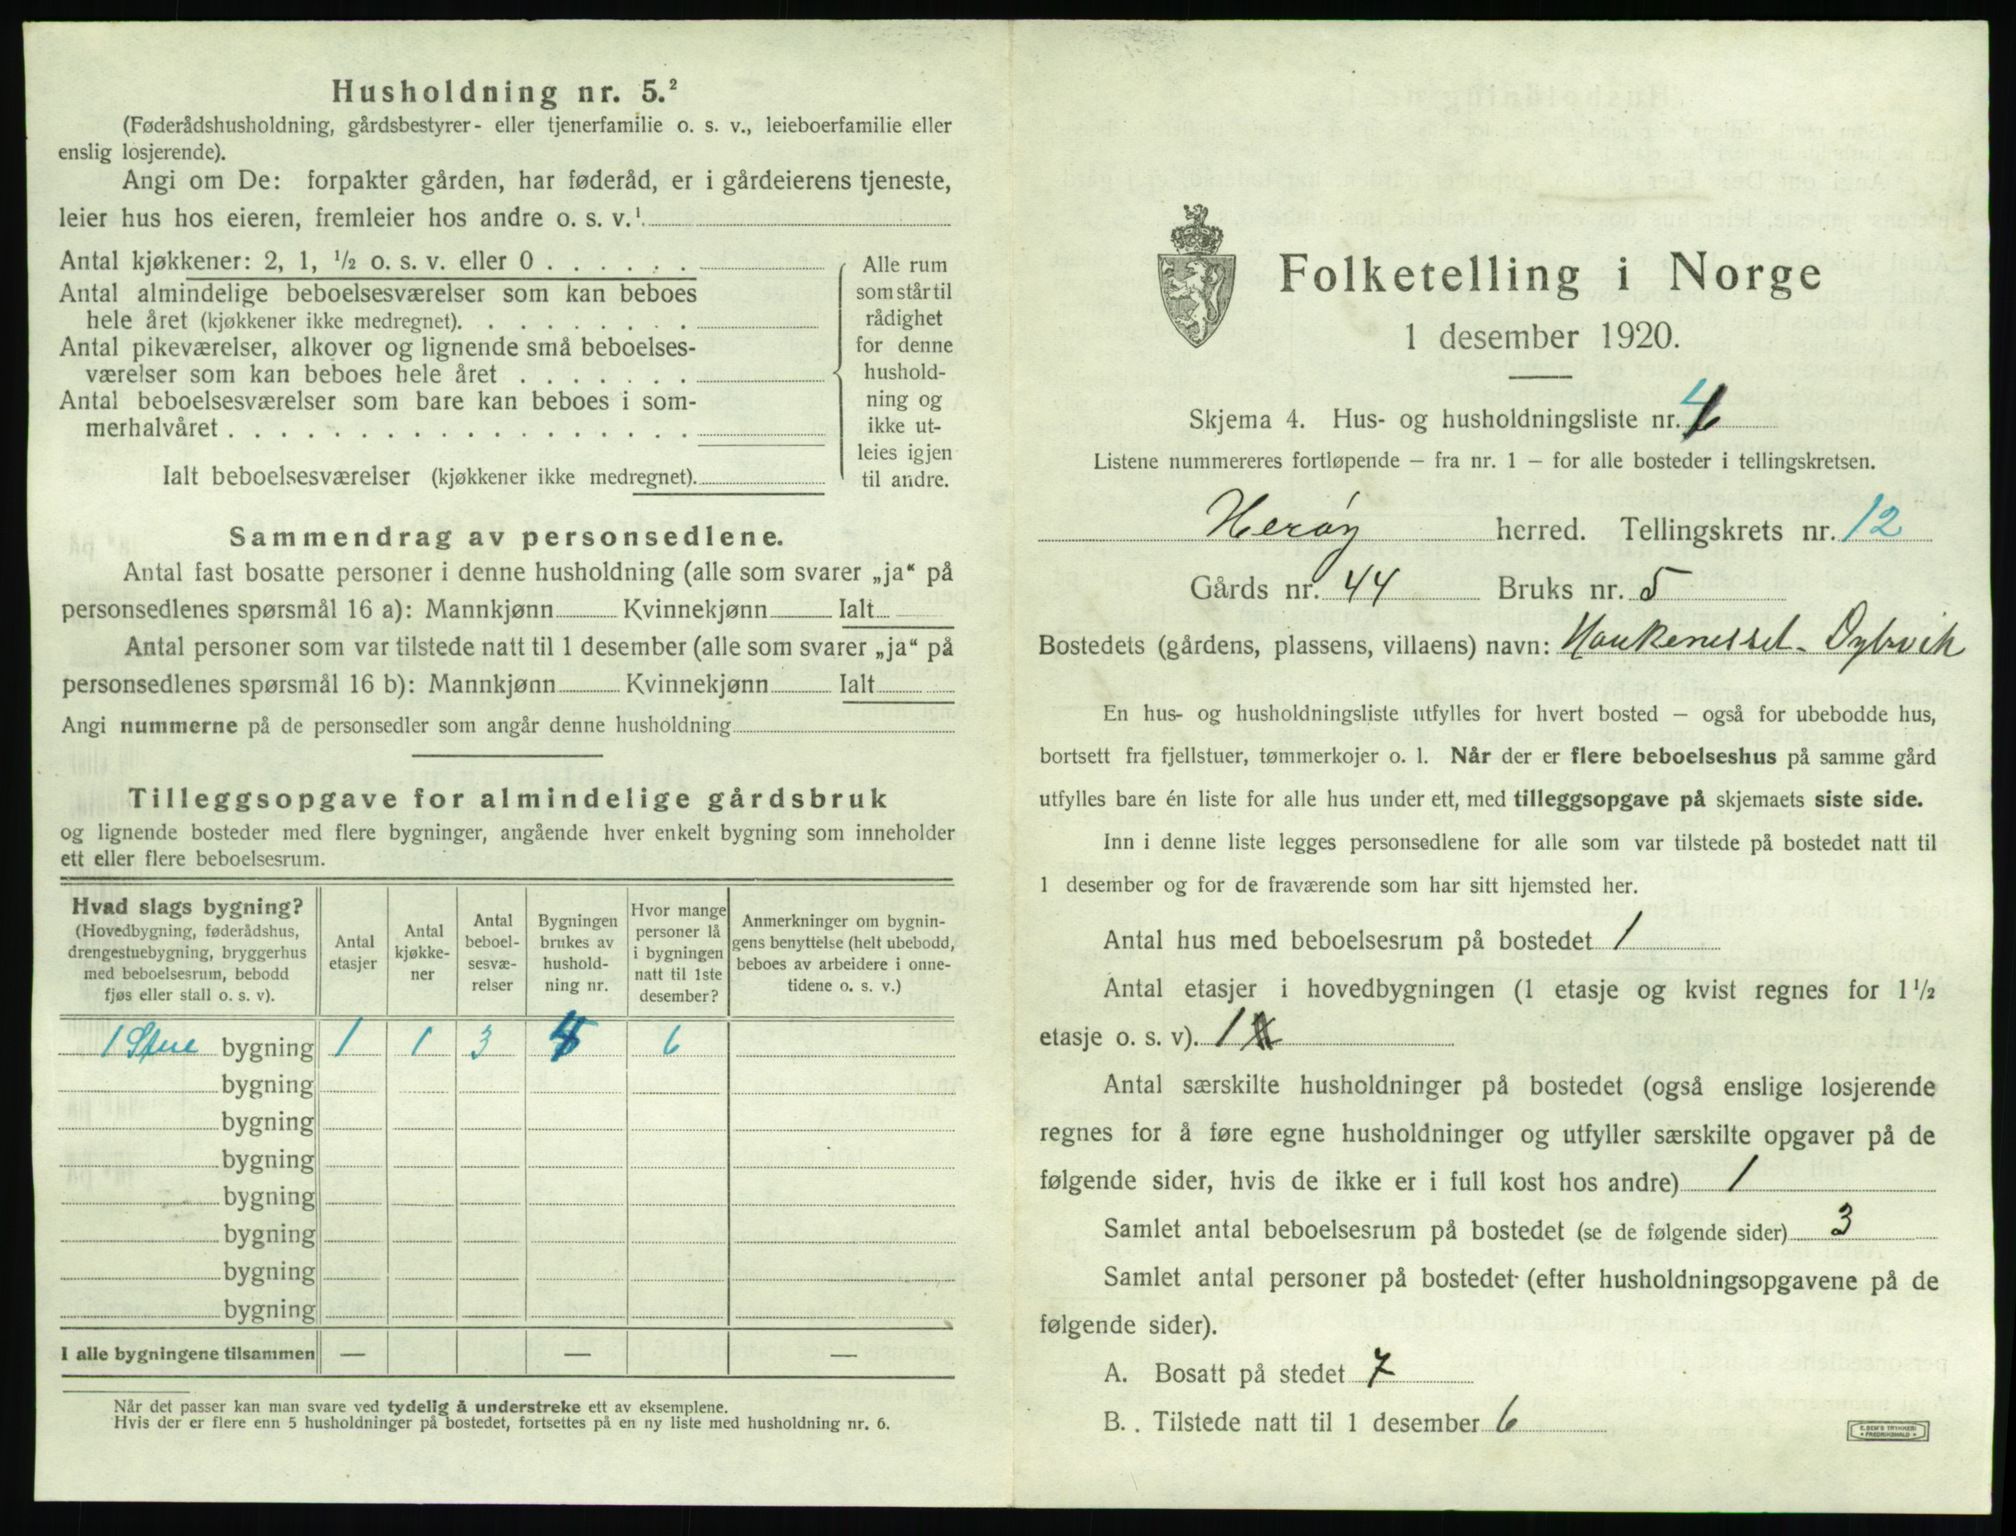 Husholdning nr. 5.²
(Føderådshusholdning, gårdsbestyrer- eller tjenerfamilie o. s. v., leieboerfamilie eller
enslig losjerende).
Angi om De: forpakter gården, har føderåd, er i gårdeierens tjeneste,
leier hus hos eieren, fremleier hos andre o. s. v.¹
Antal kjøkkener: 2, 1, ½ o. s. v. eller 0 . . . . . .
Antal almindelige beboelsesværelser som kan beboes
hele året (kjøkkener ikke medregnet). . . . . . . . .
Antal pikeværelser, alkover og lignende små beboelses-
værelser som kan beboes hele året . . . . . . .
Antal beboelsesværelser som bare kan beboes i som-
merhalvåret . . . . . . . . . . . . . . . . . .
Ialt beboelsesværelser (kjøkkener ikke medregnet).
Alle rum
som står til
rådighet
for denne
hushold-
ning og
ikke ut-
leies igjen
til andre.
Sammendrag av personsedlene.
Antal fast bosatte personer i denne husholdning (alle som svarer „ja“ på
personsedlenes spørsmål 16 a): Mannkjønn Kvinnekjønn Ialt
Antal personer som var tilstede natt til 1 desember (alle som svarer „ja“ på
personsedlenes spørsmål 16 b): Mannkjønn Kvinnekjønn Ialt
Angi nummerne på de personsedler som angår denne husholdning
Tilleggsopgave for almindelige gårdsbruk
og lignende bosteder med flere bygninger, angående hver enkelt bygning som inneholder
ett eller flere beboelsesrum.
Hvad slags bygning?
(Hovedbygning, føderådshus,
drengestuebygning, bryggerhus
med beboelsesrum, bebodd
fjøs eller stall o. s. v).
Antal
etasjer
Antal
kjøkke-
ner
Antal
beboel-
sesvæ-
relser
Bygningen
brukes av
hushold-
ning nr.
Hvor mange
personer lå
i bygningen
natt til 1ste
desember?
Anmerkninger om bygnin-
gens benyttelse (helt ubebodd,
beboes av arbeidere i onne-
tidene o. s. v.)
1 Stue bygning 1 1 3 6
bygning
bygning
bygning
bygning
bygning
bygning
bygning
I alle bygningene tilsammen — — —
Når det passer kan man svare ved tydelig å understreke ett av eksemplene.
Hvis der er flere enn 5 husholdninger på bostedet, fortsettes på en ny liste med husholdning nr. 6.
Folketelling i Norge
1 desember 1920.
Skjema 4. Hus- og husholdningsliste nr. 4
Listene nummereres fortløpende – fra nr. 1 – for alle bosteder i tellingskretsen.
Herøy herred. Tellingskrets nr. 12
Gårds nr. 44 Bruks nr. 5
Bostedets (gårdens, plassens, villaens) navn: Haukenesset - Dybvik
En hus- og husholdningsliste utfylles for hvert bosted – også for ubebodde hus,
bortsett fra fjellstuer, tømmerkojer o. l. Når der er flere beboelseshus på samme gård
utfylles bare én liste for alle hus under ett, med tilleggsopgave på skjemaets siste side.
Inn i denne liste legges personsedlene for alle som var tilstede på bostedet natt til
1 desember og for de fraværende som har sitt hjemsted her.
Antal hus med beboelsesrum på bostedet 1
Antal etasjer i hovedbygningen (1 etasje og kvist regnes for 1½
etasje o. s. v). 1
Antal særskilte husholdninger på bostedet (også enslige losjerende
regnes for å føre egne husholdninger og utfyller særskilte opgaver på de
følgende sider, hvis de ikke er i full kost hos andre) 1
Samlet antal beboelsesrum på bostedet (se de følgende sider) 3
Samlet antal personer på bostedet (efter husholdningsopgavene på de
følgende sider).
A. Bosatt på stedet 7
B. Tilstede natt til 1 desember 6